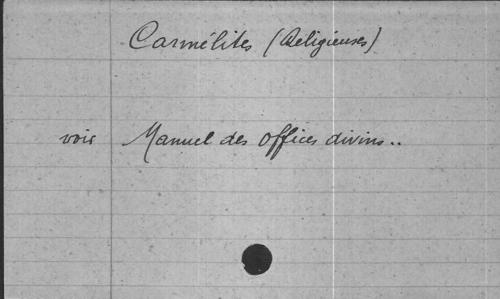 Carmélites (Religieuses)
voir Manuel des offices divins..